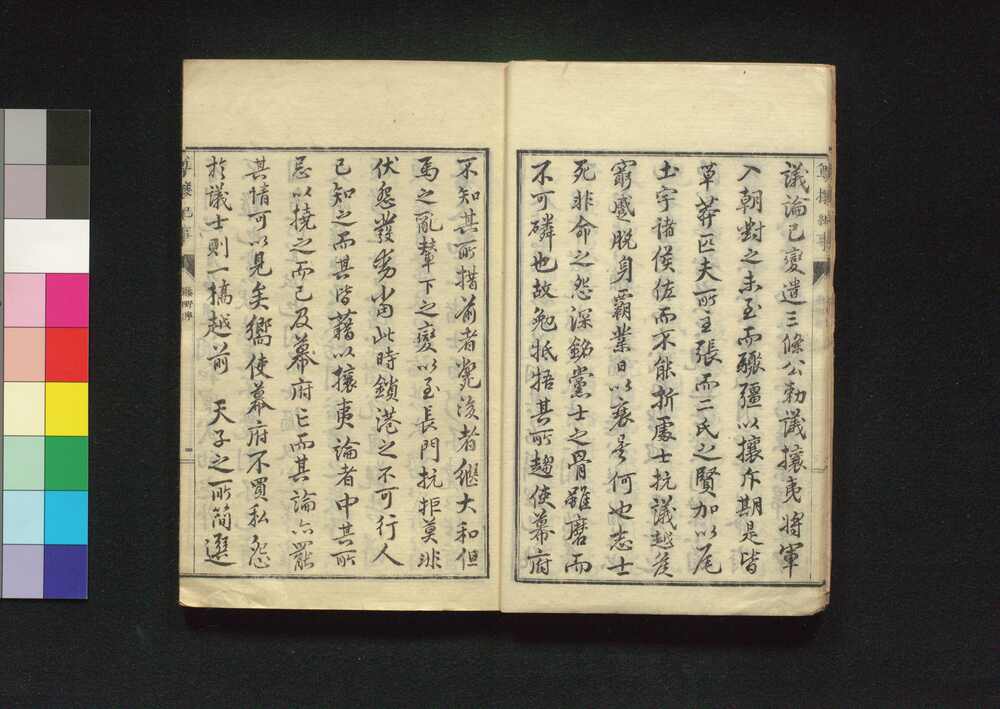 議論已變遣三條公勅議攘夷將軍
入朝對之未至而驟彊以攘斥期是皆
草莽匹夫所主張而二氏之賢加以尾
土宇諸侯佐而不能折處士抗議越後
窮蹙脱身霸業日以衰是何也志士
死非命之怨深銘黨士之骨雖磨而
不可磷也故勉抵牾其所趨使幕府
不知其所措前者斃後者繼大和但
馬之亂輦下之變以至長門抗拒莫非
伏怨發勢當此時鎖港之不可行人
已知之而其皆藉以攘夷論者中其所
忌以撓之而已及幕府亡而其論亦罷
其情可以見矣嚮使幕府不買私怨
於議士則一搞越前 天子之所簡選